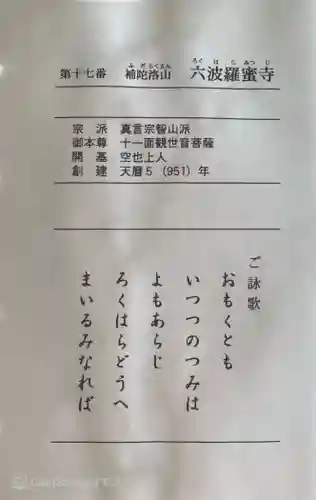 第十七番 補陀洛山 六波羅蜜寺
ふだらくさん ろくはらみつじ
宗派 真言宗智山派
御本尊 十一面観世音菩薩
開基 空也上人
創建 天暦5（951）年
ご詠歌
おもくとも
いつつのつみは
よもあらじ
ろくはらどうへ
まいるみなれば